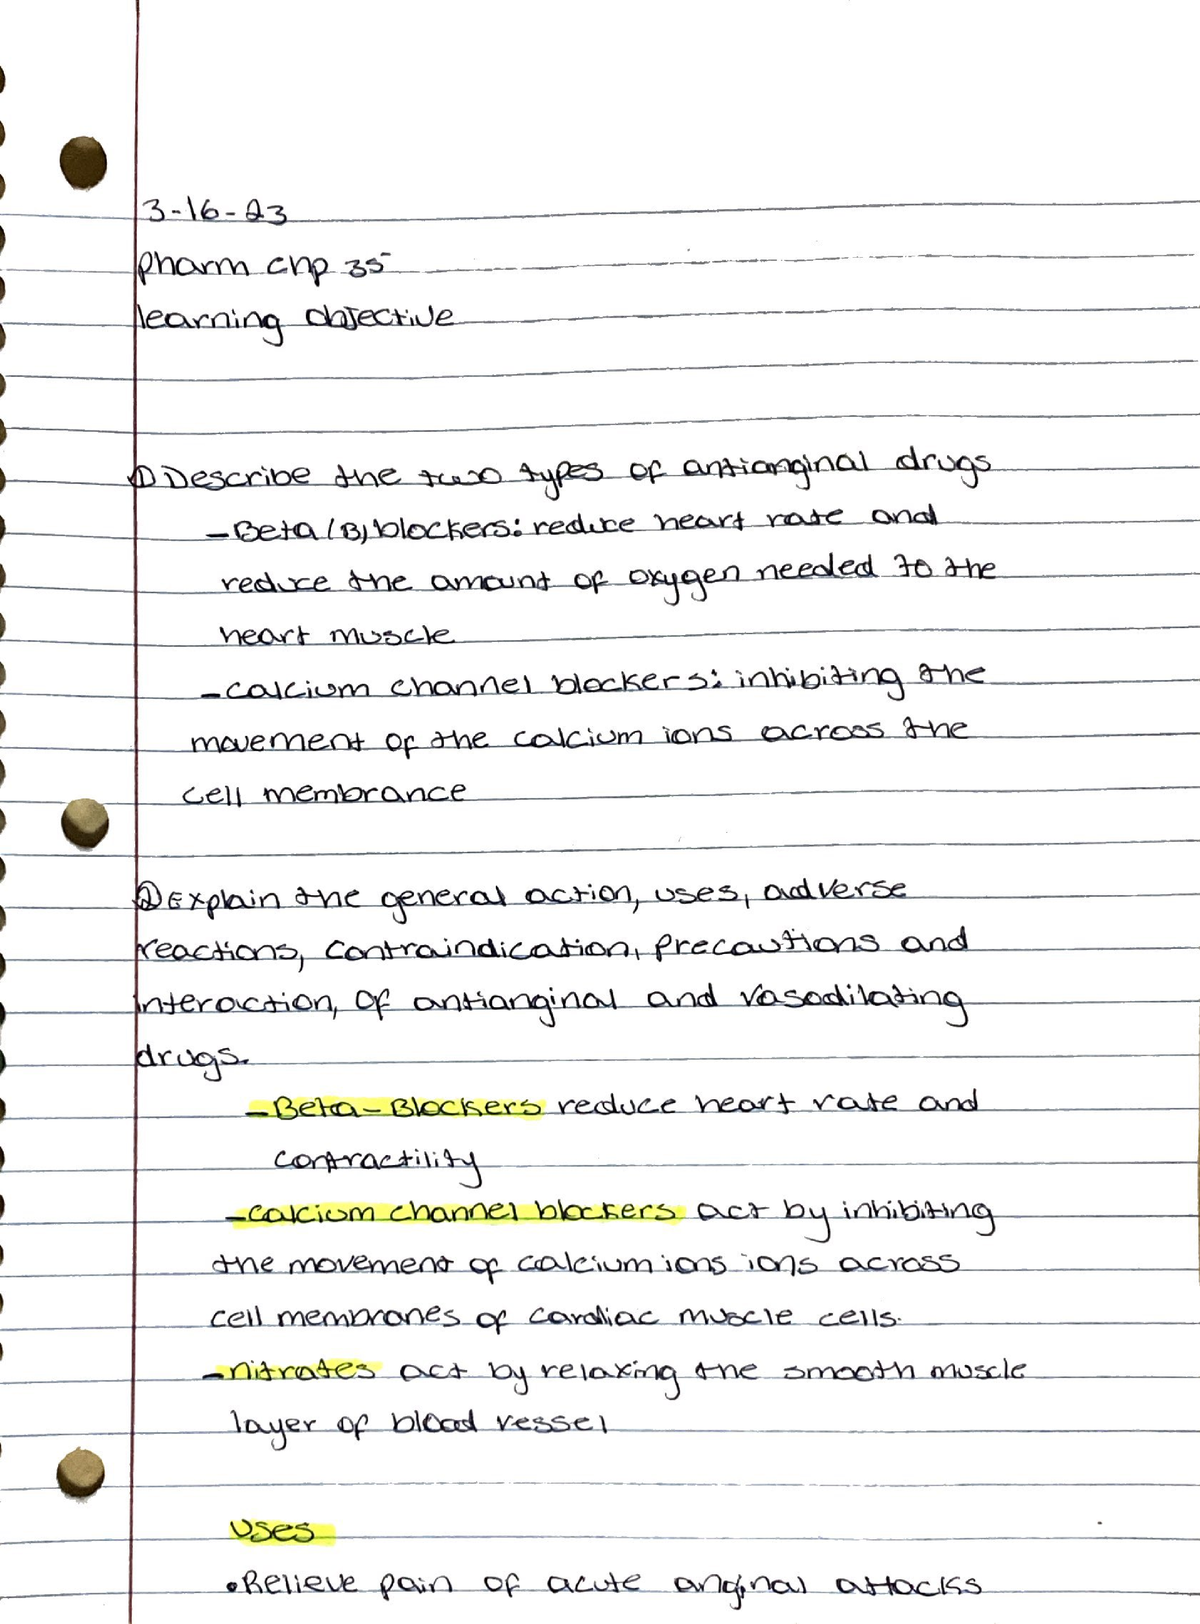 3-16-23
Pharm chp 35
learning objective
① Describe the two types of antianginal drugs
- Beta (B) blockers: reduce heart rate and
reduce the amount of oxygen needed to the
heart muscle
- calcium channel blockers: inhibiting the
movement of the calcium ions across the
cell membrance
② Explain the general action, uses, adverse
reactions, contraindication, precautions and
interaction, of antianginal and vasodilating
drugs.
- Beta-Blockers reduce heart rate and
contractility
- calcium channel blockers act by inhibiting
the movement of calcium ions ions across
cell membranes of cardiac muscle cells.
- nitrates act by relaxing the smooth muscle
layer of blood vessel
uses
• Relieve pain of acute anginal attacks